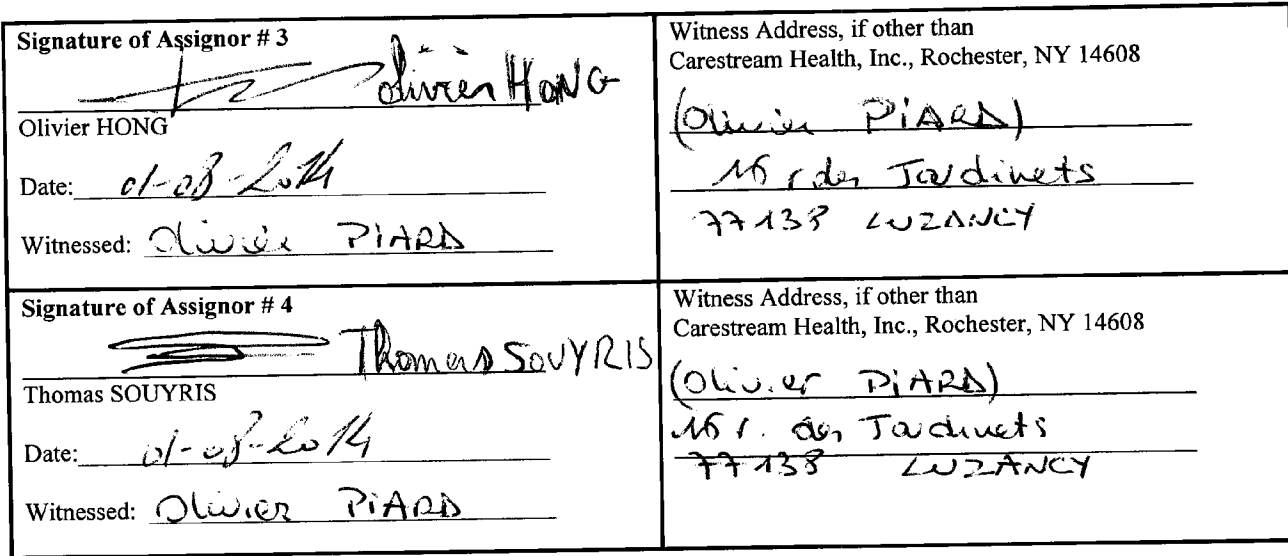 Signature of Assignor # 3
Olivier HONG
Olivier HONG
Date: 01-08-2014
Witnessed: Olivier PIARD
Witness Address, if other than
Carestream Health, Inc., Rochester, NY 14608
(Olivier PIARD)
16 r des Jardinets
77138 LUZANCY
Signature of Assignor # 4
Thomas SOUYRIS
Thomas SOUYRIS
Date: 01-08-2014
Witnessed: Olivier PIARD
Witness Address, if other than
Carestream Health, Inc., Rochester, NY 14608
(Olivier PIARD)
16 r. des Jardinets
77138 LUZANCY